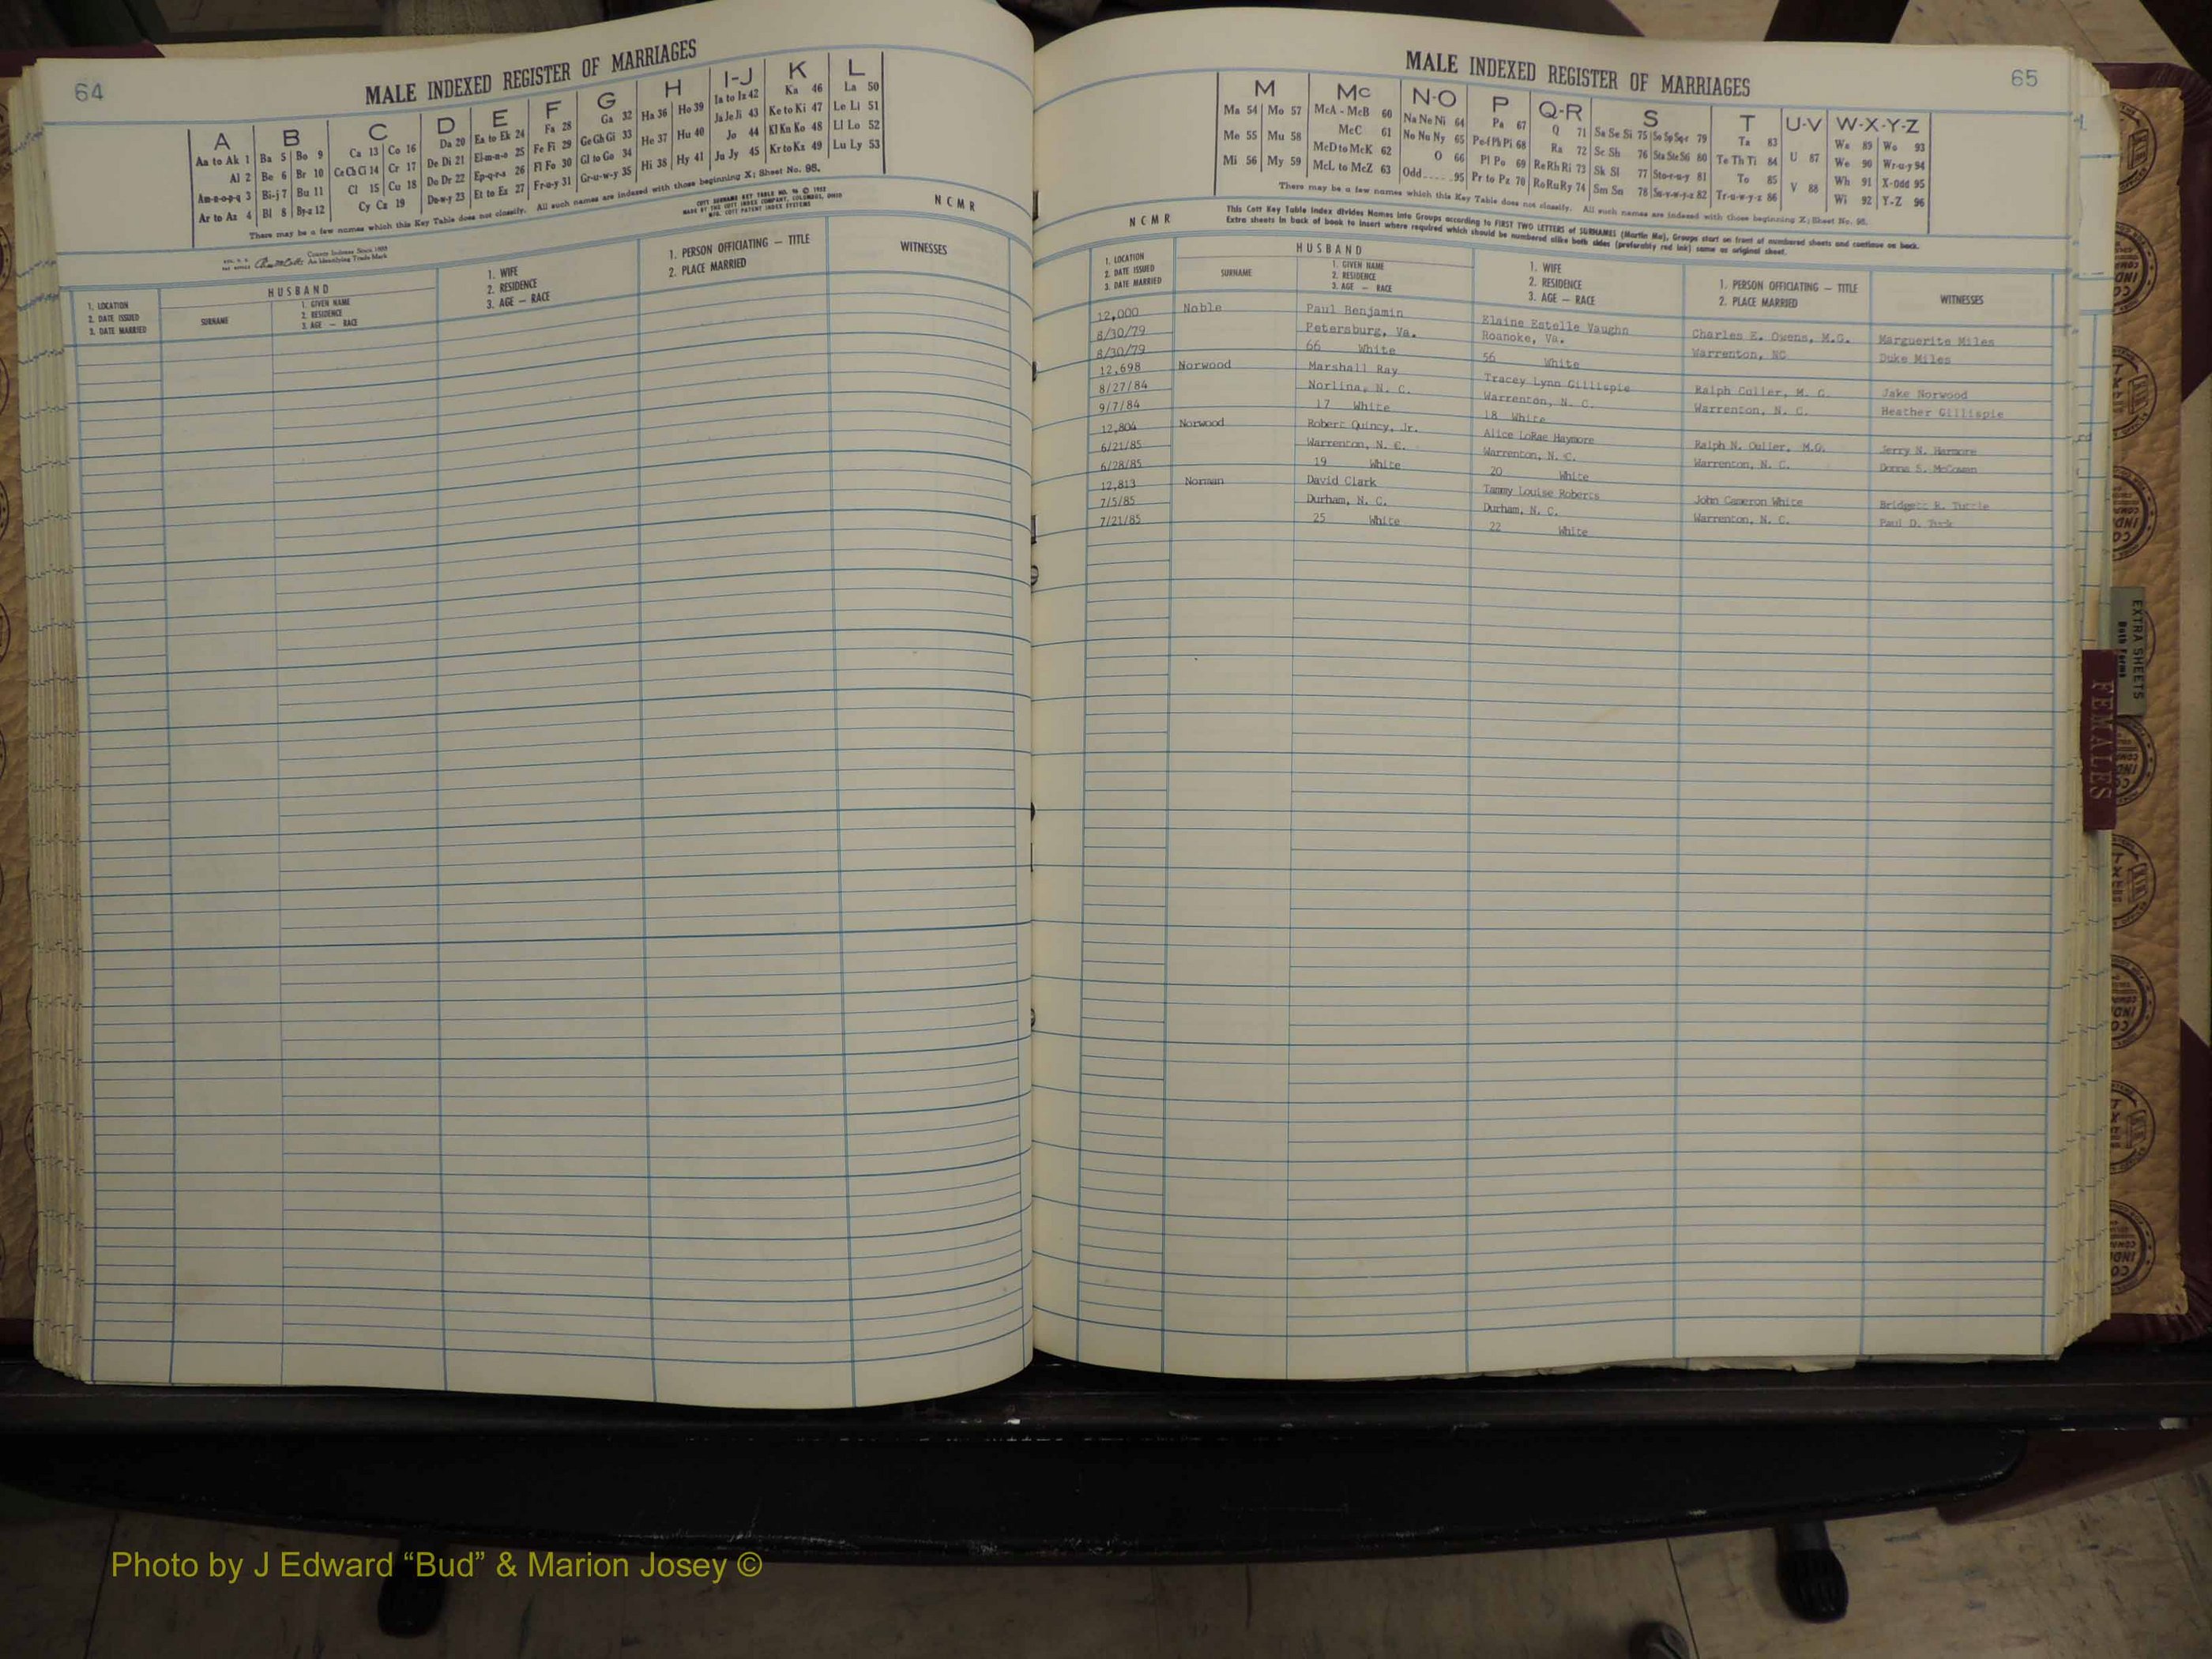 64
MALE INDEXED REGISTER OF MARRIAGES
A B C D E F G H I-J K L
Aa to Ak 1 Ba 5 Bo 9 Ca 13 Co 16 Da 20 Ea to Ek 24 Fa 28 Ga 32 Ha 36 Ho 39 Ia to Iz 42 Ka 46 La 50
Al 2 Be 6 Br 10 Ce Ch Ci 14 Cr 17 De Di 21 El-m-n-o 25 Fe Fi 29 Ge Gh Gi 33 He 37 Hu 40 Ja Je Ji 43 Ke to Ki 47 Le Li 51
Am-n-o-p-q 3 Bi-j 7 Bu 11 Cl 15 Cu 18 Do Dr 22 Ep-q-r-s 26 Fl Fo 30 Gl to Go 34 Hi 38 Hy 41 Jo 44 Kl Kn Ko 48 Ll Lo 52
Ar to Az 4 Bl 8 By-z 12 Cy Cz 19 Du-w-y 23 Et to Ez 27 Fr-u-y 31 Gr-u-w-y 35 Ju Jy 45 Kr to Kz 49 Lu Ly 53
There may be a few names which this Key Table does not classify. All such names are indexed with those beginning X; Sheet No. 95.
COTT SURNAME KEY TABLE NO. 96 © 1952
MADE BY THE COTT INDEX COMPANY, COLUMBUS, OHIO
MFG. COTT PATENT INDEX SYSTEMS
NCMR
County Indexes Since 1888
An Identifying Trade Mark
1. LOCATION
2. DATE ISSUED
3. DATE MARRIED
HUSBAND
SURNAME
1. GIVEN NAME
2. RESIDENCE
3. AGE — RACE
1. WIFE
2. RESIDENCE
3. AGE — RACE
1. PERSON OFFICIATING — TITLE
2. PLACE MARRIED
WITNESSES
MALE INDEXED REGISTER OF MARRIAGES
65
M Mc N-O P Q-R S T U-V W-X-Y-Z
Ma 54 Mo 57 McA - McB 60 Na Ne Ni 64 Pa 67 Q 71 Sa Se Si 75 So Sp Sq-r 79 Ta 83 U 87 Wa 89 Wo 93
Me 55 Mu 58 McC 61 No Nu Ny 65 Pe-f Ph Pi 68 Ra 72 Sc Sh 76 Sta Ste Sti 80 Te Th Ti 84 V 88 We 90 Wr-u-y 94
Mi 56 My 59 McD to McK 62 O 66 Pl Po 69 Re Rh Ri 73 Sk Sl 77 Sto-r-u-y 81 To 85 Wh 91 X-Odd 95
McL to McZ 63 Odd.....95 Pr to Pz 70 Ro Ru Ry 74 Sm Sn 78 Su-v-w-y-z 82 Tr-u-w-y-z 86 Wi 92 Y-Z 96
There may be a few names which this Key Table does not classify. All such names are indexed with those beginning X; Sheet No. 95.
NCMR
This Cott Key Table Index divides Names into Groups according to FIRST TWO LETTERS of SURNAMES (Martin Ma), Groups start on front of numbered sheets and continue on back.
Extra sheets in back of book to insert where required which should be numbered alike both sides (preferably red ink) same as original sheet.
1. LOCATION
2. DATE ISSUED
3. DATE MARRIED
HUSBAND
SURNAME
1. GIVEN NAME
2. RESIDENCE
3. AGE — RACE
1. WIFE
2. RESIDENCE
3. AGE — RACE
1. PERSON OFFICIATING — TITLE
2. PLACE MARRIED
WITNESSES
12,000 Noble Paul Benjamin Elaine Estelle Vaughn Charles E. Owens, M.G. Marguerite Miles
8/30/79 Petersburg, Va. Roanoke, Va. Warrenton, NC Duke Miles
8/30/79 66 White 56 White
12,698 Norwood Marshall Ray Tracey Lynn Gillispie Ralph Culler, M. G. Jake Norwood
8/27/84 Norlina, N. C. Warrenton, N. C. Warrenton, N. C. Heather Gillispie
9/7/84 17 White 18 White
12,804 Norwood Robert Quincy, Jr. Alice LoRae Haymore Ralph N. Culler, M.G. Jerry N. Harmore
6/21/85 Warrenton, N. C. Warrenton, N. C. Warrenton, N. C. Donna S. McCowan
6/28/85 19 White 20 White
12,813 Norman David Clark Tammy Louise Roberts John Cameron White Bridgett R. Tuttle
7/5/85 Durham, N. C. Durham, N. C. Warrenton, N. C. Paul D. Tuck
7/21/85 25 White 22 White
EXTRA SHEETS
Both Forms
FEMALES
Photo by J Edward “Bud” & Marion Josey ©